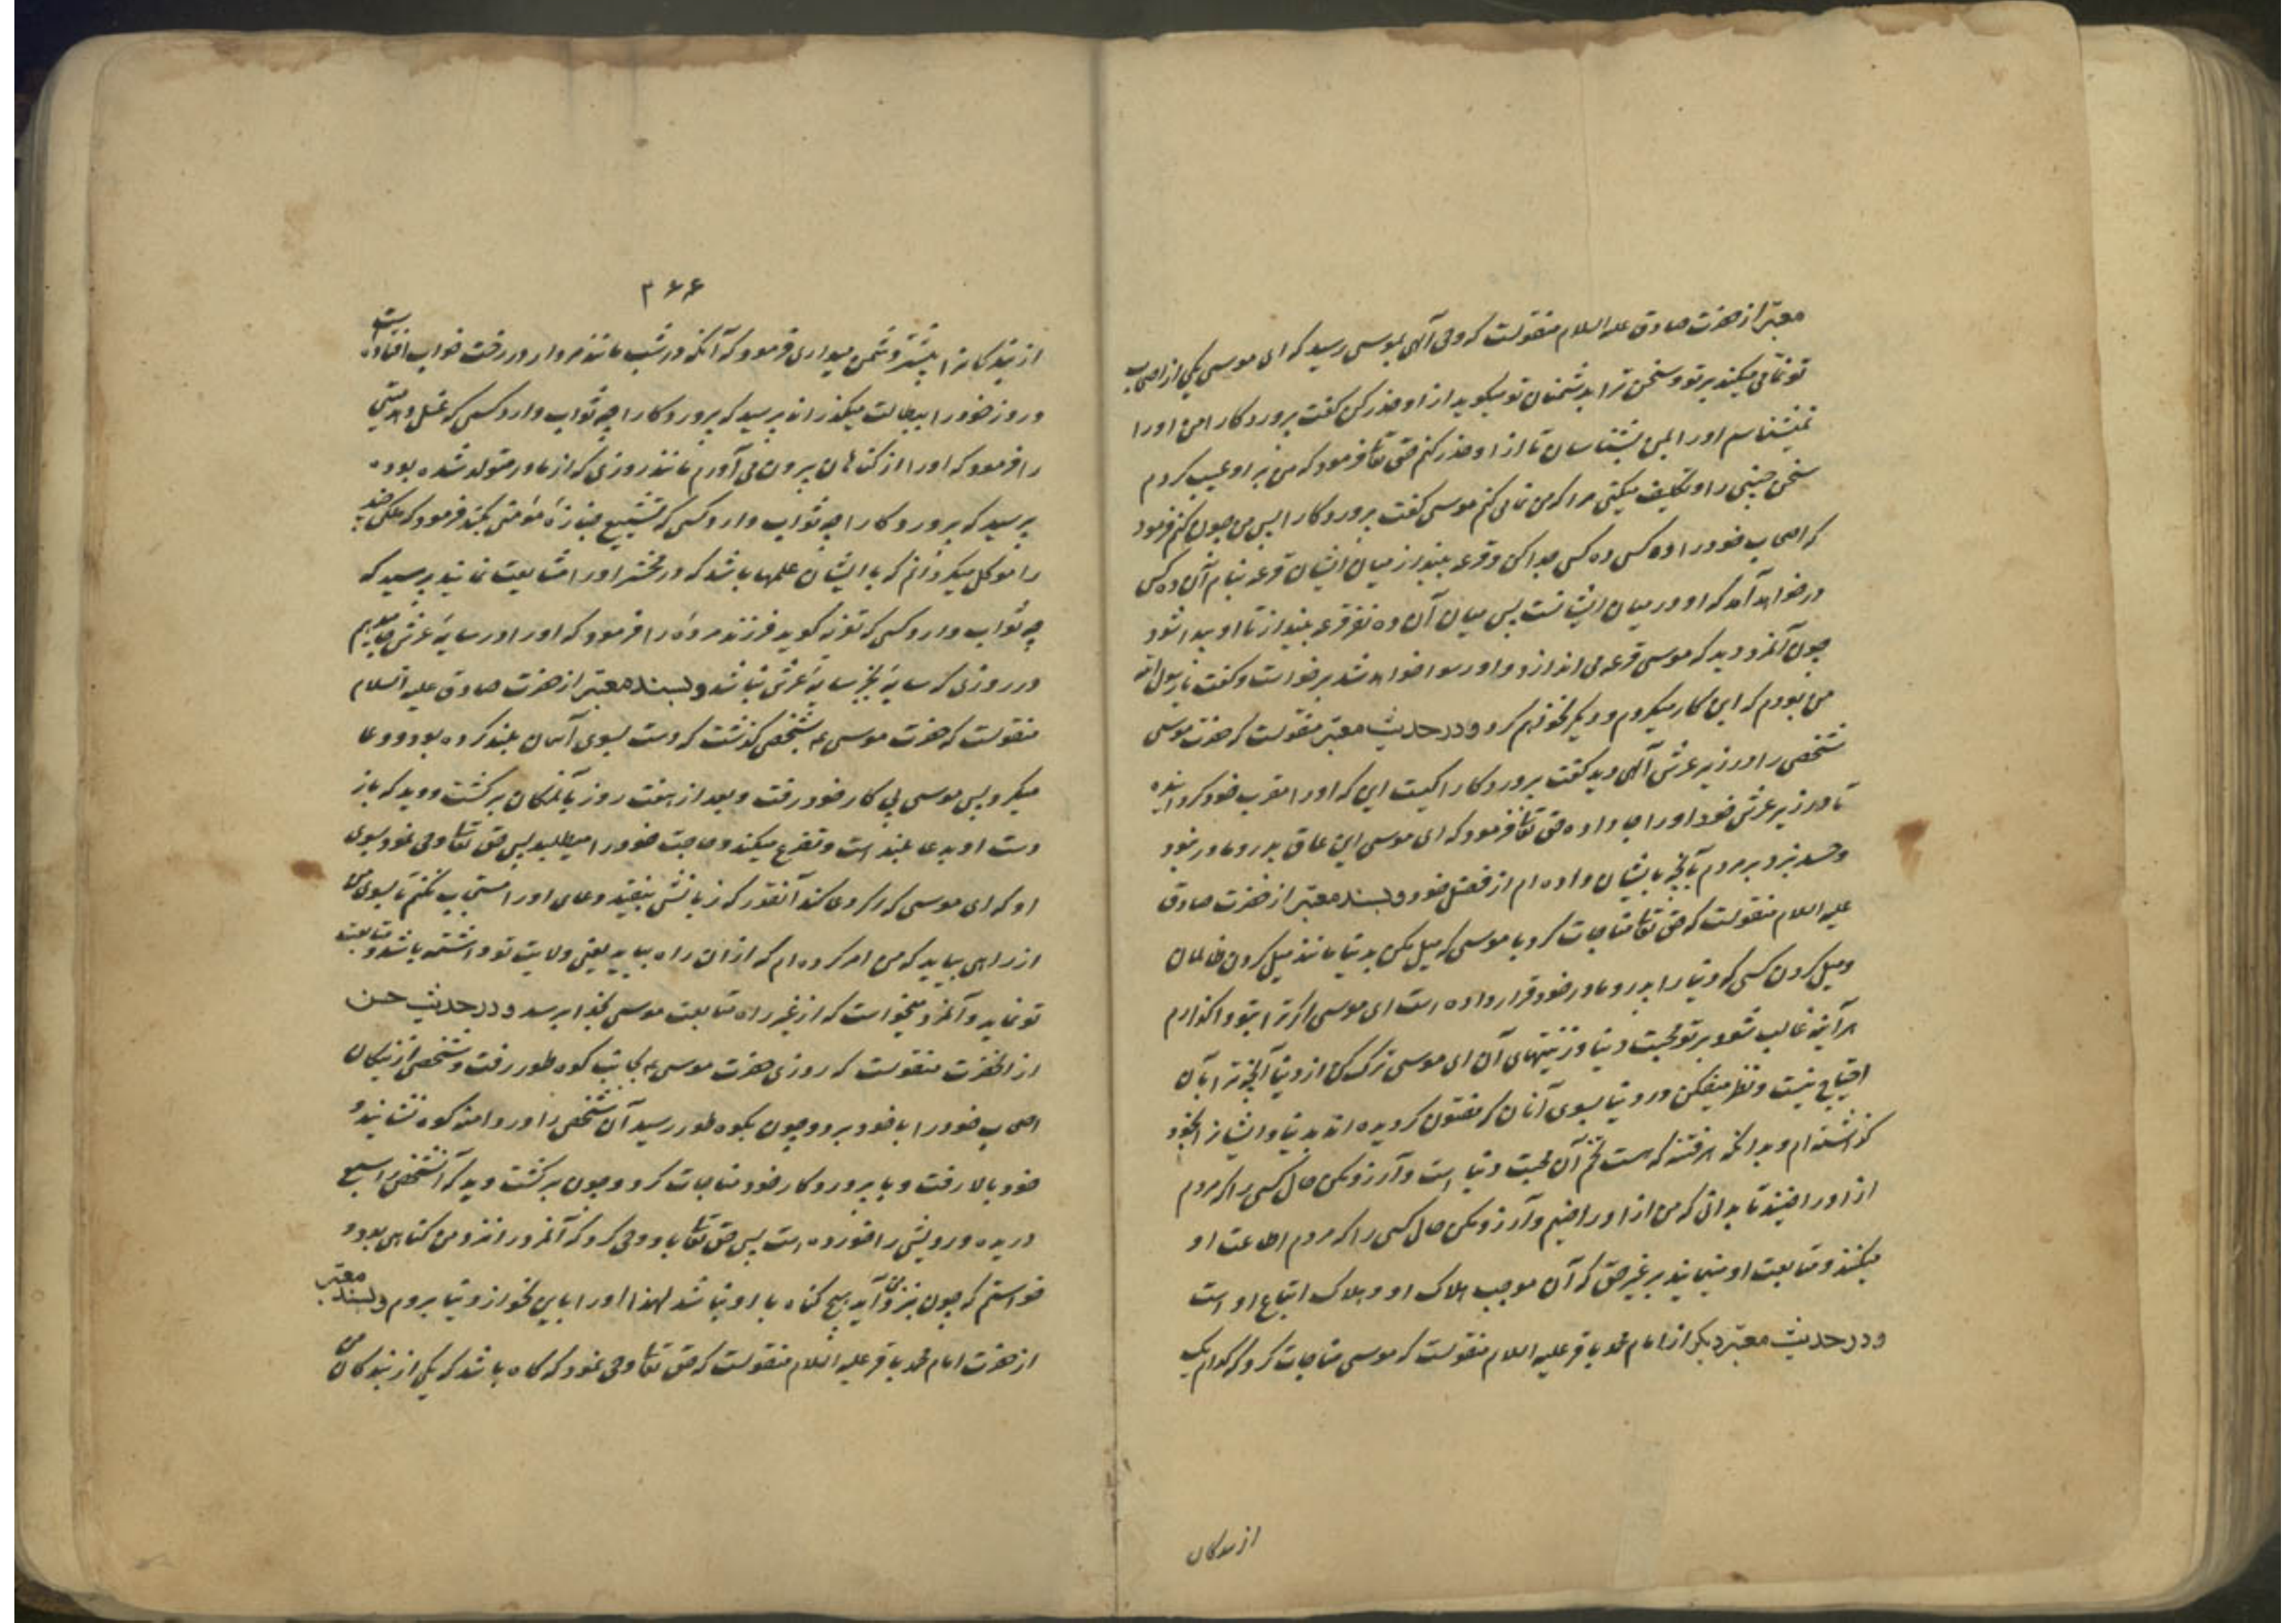 معتبر از حضرت صادق علیه السلام منقولست که وحی آلهی بموسی رسید که ای موسی یکی از اصحاب
تو نمّامی میکند بر تو و سخن ترا بدشمنان تو میکوید از او حذر کن کفت پروردکارا من او را
نمیشناسم او را بمن بشناسان تا از او حذر کنم حق تعا فرمود که من بر او عیب کردم
سخن چینی را و تکلیف میکنی مرا که من نمامی کنم موسی کفت پروردکارا پس من چون کنم فرمود
که اصحاب خود را ده کس ده کس جدا کن و قرعه بینداز میان ایشان قرعه بنام آن ده کس
در خواهد آمد که او در میان ایشانست پس میان آن ده نفر قرعه بینداز تا او پیدا شود
چون آنمرد دید که موسی قرعه می اندازد و او رسوا خواهد شد برخواست و کفت یا رسول الله
من بودم که این کار میکردم و دیکر نخواهم کرد و در حدیث معتبر منقولست که حضرت موسی
شخصی را در زیر عرش آلهی دید کفت پروردکارا کیست این که او را مقرب خود کردانیده
تا در زیر عرش خود او را جا داده حق تعا فرمود که ای موسی این عاق پدر و مادر نبود
و حسد نبرد بر مردم بآنچه بایشان داده ام از فضل خود و بسند معتبر از حضرت صادق
علیه السلام منقولست که حق تعا مناجات کرد با موسی که میل مکن بدنیا مانند میل کردن ظالمان
و میل کردن کسی که دنیا را پدر و مادر خود قرار داده است ای موسی اکر ترا بتو واکذارم
هر آینه غالب شود بر تو محبت دنیا و زینتهای آن ای موسی ترک کن از دنیا آنچه ترا بآن
احتیاج نیست و نظر میفکن در دنیا بسوی آنان که مفتون کردیده اند بدنیا و ایشانرا بخود
کذاشته ام و بدانکه هر فتنه که هست تخم آن محبت دنیا است و آرزو مکن حال کسی را که مردم
از او راضیند تا بدانی که من از او راضیم و آرزو مکن حال کسی را که مردم اطاعت او
میکنند و متابعت او مینمایند بر غیر حق که آن موجب هلاک او و هلاک اتباع او است
و در حدیث معتبر دیکر از امام محمد باقر علیه السلام منقولست که موسی مناجات کرد که کدام یک
از بندکان
۳۶۶
از بندکانرا بیشتر دشمن میداری فرمود که آنکه در شب مانند مردار در رخت خواب افتاده است
و روز خود را ببطالت میکذراند پرسید که پروردکارا چه ثواب دارد کسی که غسل دهد میتی
را فرمود که او را از کناهان بیرون می آورم مانند روزی که از مادر متولد شده بوده
پرسید که پروردکارا چه ثواب دارد کسی که تشییع جنازهٔ مؤمنی بکند فرمود که ملکی چند
را موکل میکردانم که با ایشان علمها باشد که در محشر او را مشایعت نمایند پرسید که
چه ثواب دارد کسی که تعزیه کوید فرزند مردهٔ را فرمود که او را در سایهٔ عرش جا میدهم
در روزی که سایهٔ بجز سایهٔ عرش نباشد و بسند معتبر از حضرت صادق علیه السلام
منقولست که حضرت موسی ع بشخصی کذشت که دست بسوی آسمان بلند کرده بود و دعا
میکرد پس موسی پی کار خود رفت و بعد از هفت روز بآنمکان برکشت و دید که باز
دست او بدعا بلند است و تضرع میکند و حاجت خود را میطلبد پس حق تعا وحی نمود بسوی
او که ای موسی که اکر دعا کند آنقدر که زبانش بیفتد دعای او را مستجاب نکنم تا بسوی من
از راهی بیاید که من امر کرده ام که از آن راه بیاید یعنی ولایت تو داشته باشد و متابعت
تو نماید و آنمرد میخواست که از غیر راه متابعت موسی بخدا برسد و در حدیث حسن
از انحضرت منقولست که روزی حضرت موسی ع بجانب کوه طور رفت و شخصی از نیکان
اصحاب خود را با خود برد و چون بکوه طور رسید آن شخص را در دامنه کوه نشانید و
خود بالا رفت و با پروردکار خود مناجات کرد و چون برکشت دید که آنشخص را سبع
دریده و رویش را خورده است پس حق تعا باو وحی کرد که آنمرد را نزد من کناهی بود و
خواستم که چون بنزد من آید هیچ کناه با او نباشد لهذا او را باین نحو از دنیا بردم و بسند معتبر
از حضرت امام محمد باقر علیه السلام منقولست که حق تعا وحی نمود که کاه باشد که یکی از بندکان من